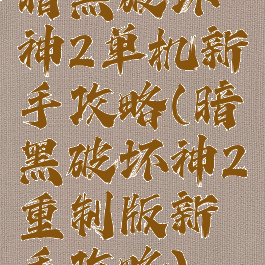 暗黑破坏
神2单机新
手攻略(暗
黑破坏神2
重制版新
手攻略)